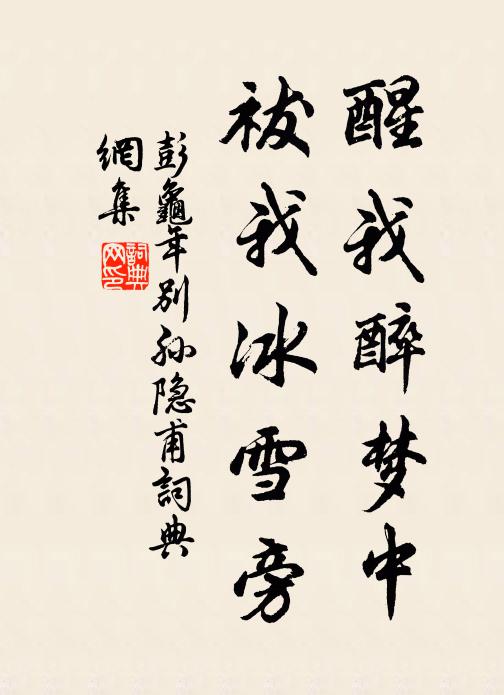 醒我醉梦中
祓我冰雪旁
彭龜年别孙隐甫詞典
網集
詞典网印